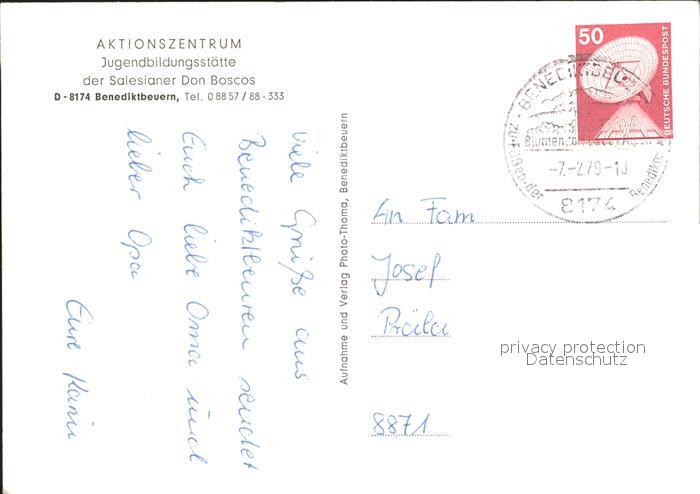 AKTIONSZENTRUM
Jugendbildungsstätte
der Salesianer Don Boscos
D-8174 Benediktbeuern, Tel. 0 88 57 / 88-333
Viele Grüße aus
Benediktbeuren sendet
Euch liebe Oma und
lieber Opa
Eure Karin
Aufnahme und Verlag Photo-Thoma, Benediktbeuern
50
DEUTSCHE BUNDESPOST
Blumen
-7.-2.79-1
zu-Füßen-der
8174
An Fam
Josef
8871
privacy protection
Datenschutz